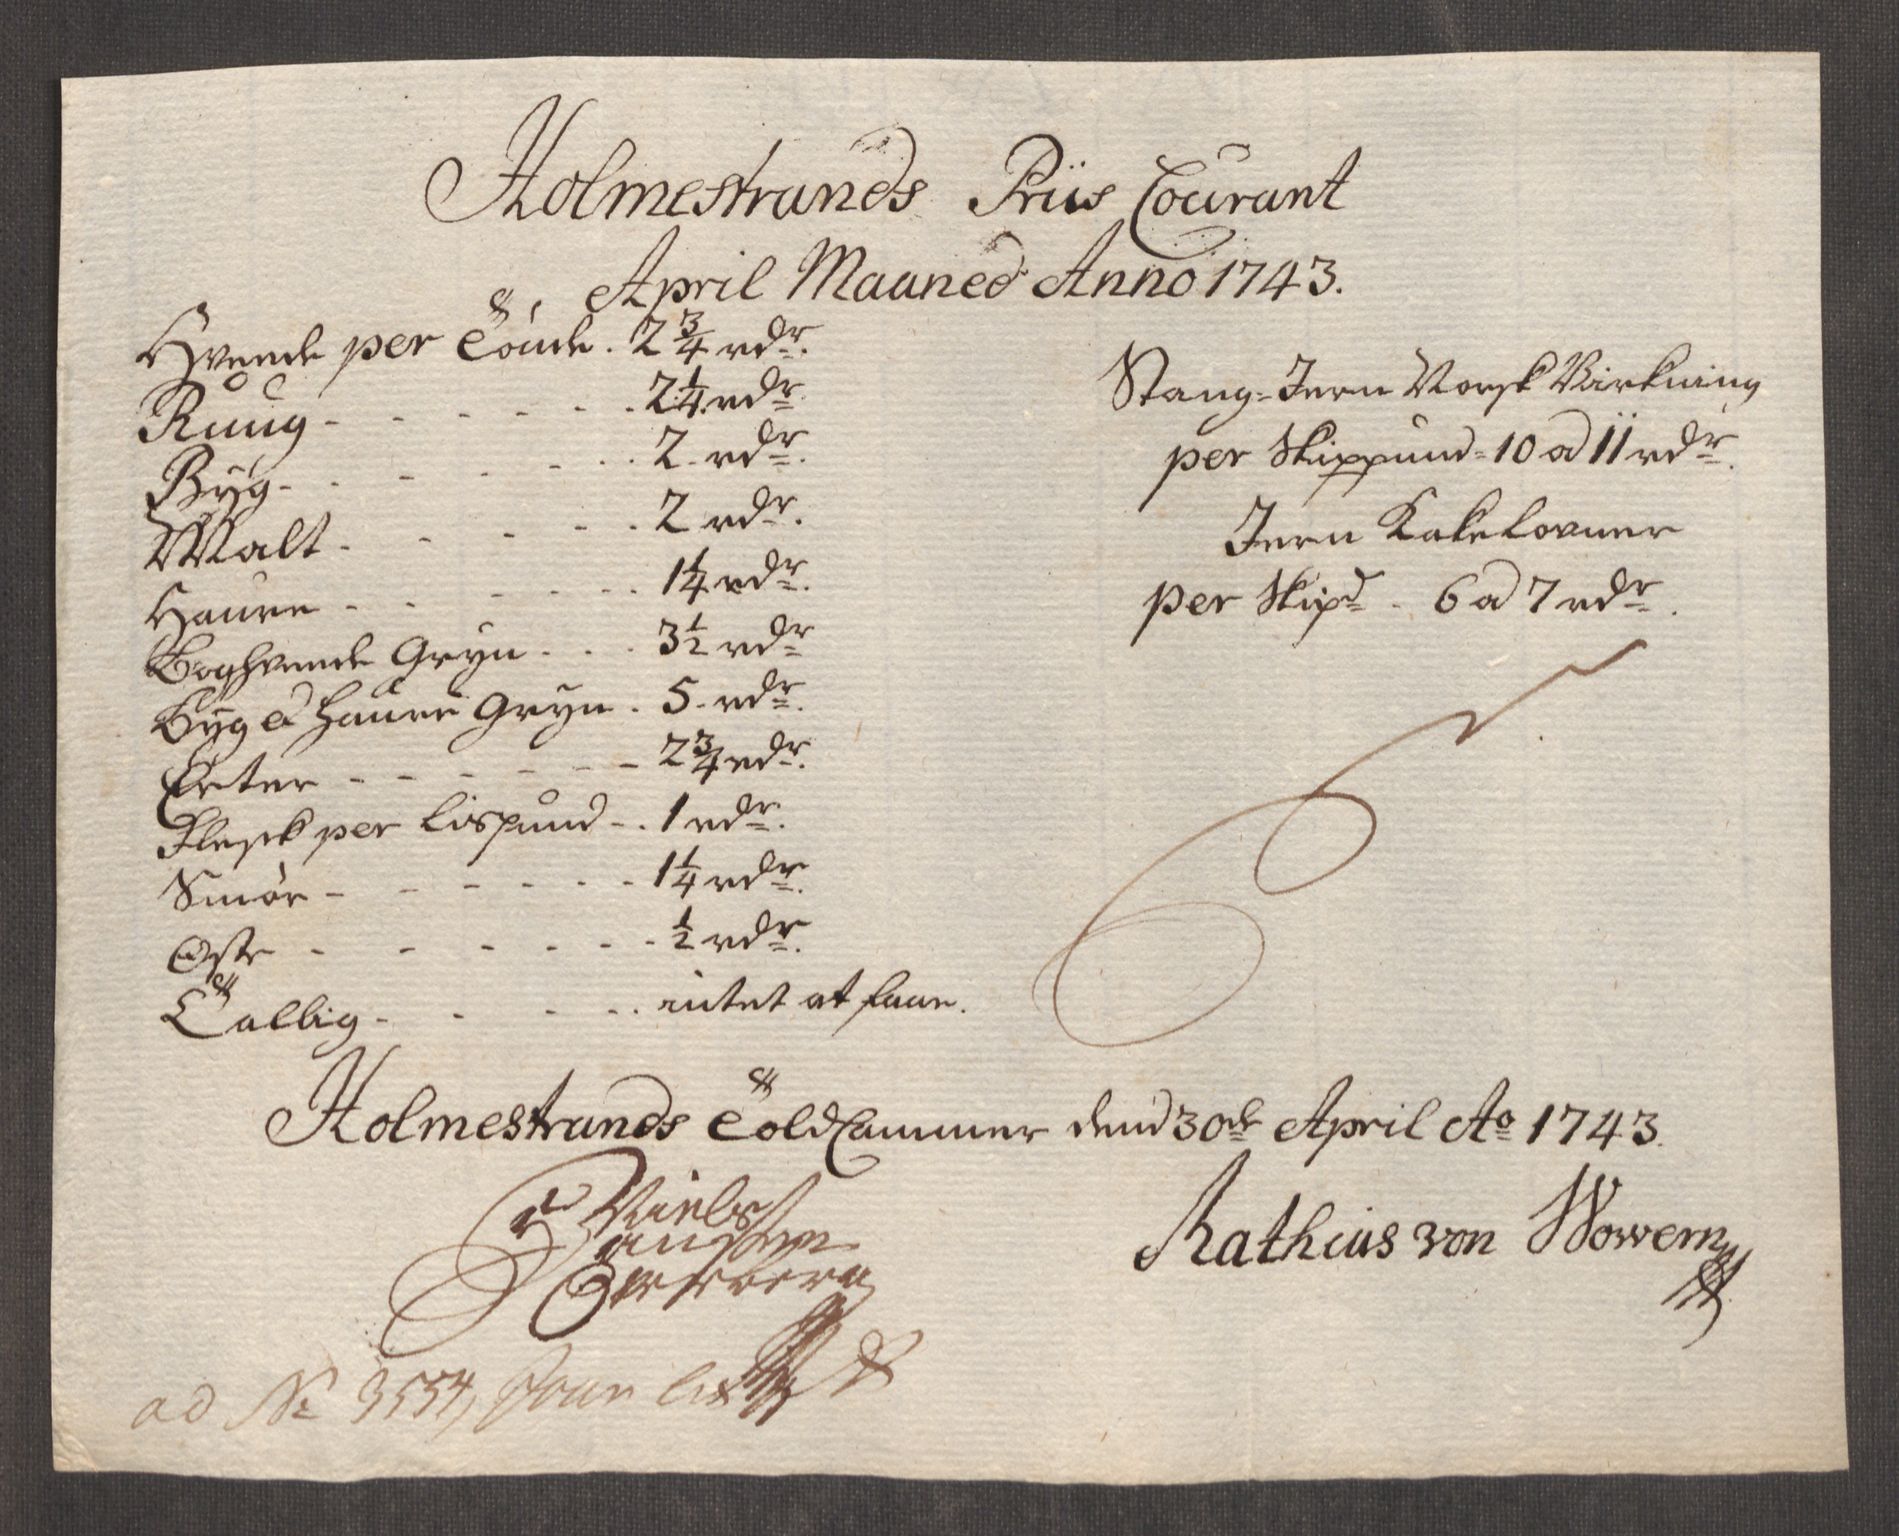 Holmestrands Priis Courant
April Maaned Anno 1743.
Hveede per Tönde. 2 3/4 rdr.
Ruug - - - - - - 2 1/4 rdr.
Byg - - - - - - 2 rdr.
Malt - - - - - 2 rdr.
Haure - - - - - - 1 1/4 rdr.
Boghveede Gryn - - - 3 1/2 rdr
Byg a Haure Gryn . 5 rdr.
Erter - - - - - - 2 3/4 rdr.
Flesk per Lispund - . 1 rdr.
Smör - - - - - - 1 1/4 rdr.
Oste - - - - - - 1/2 rdr.
Tallig - - - - - intet at faae.
Stang-Jern Norsk Virkning
per Skippund - 10 a 11 rdr.
Jern Kakelovner
per Skipd - 6 a 7 rdr.
Holmestrands Told Cammer dend 30de April Ao 1743.
Niels
Mathias von Wowern
ad No 3554,